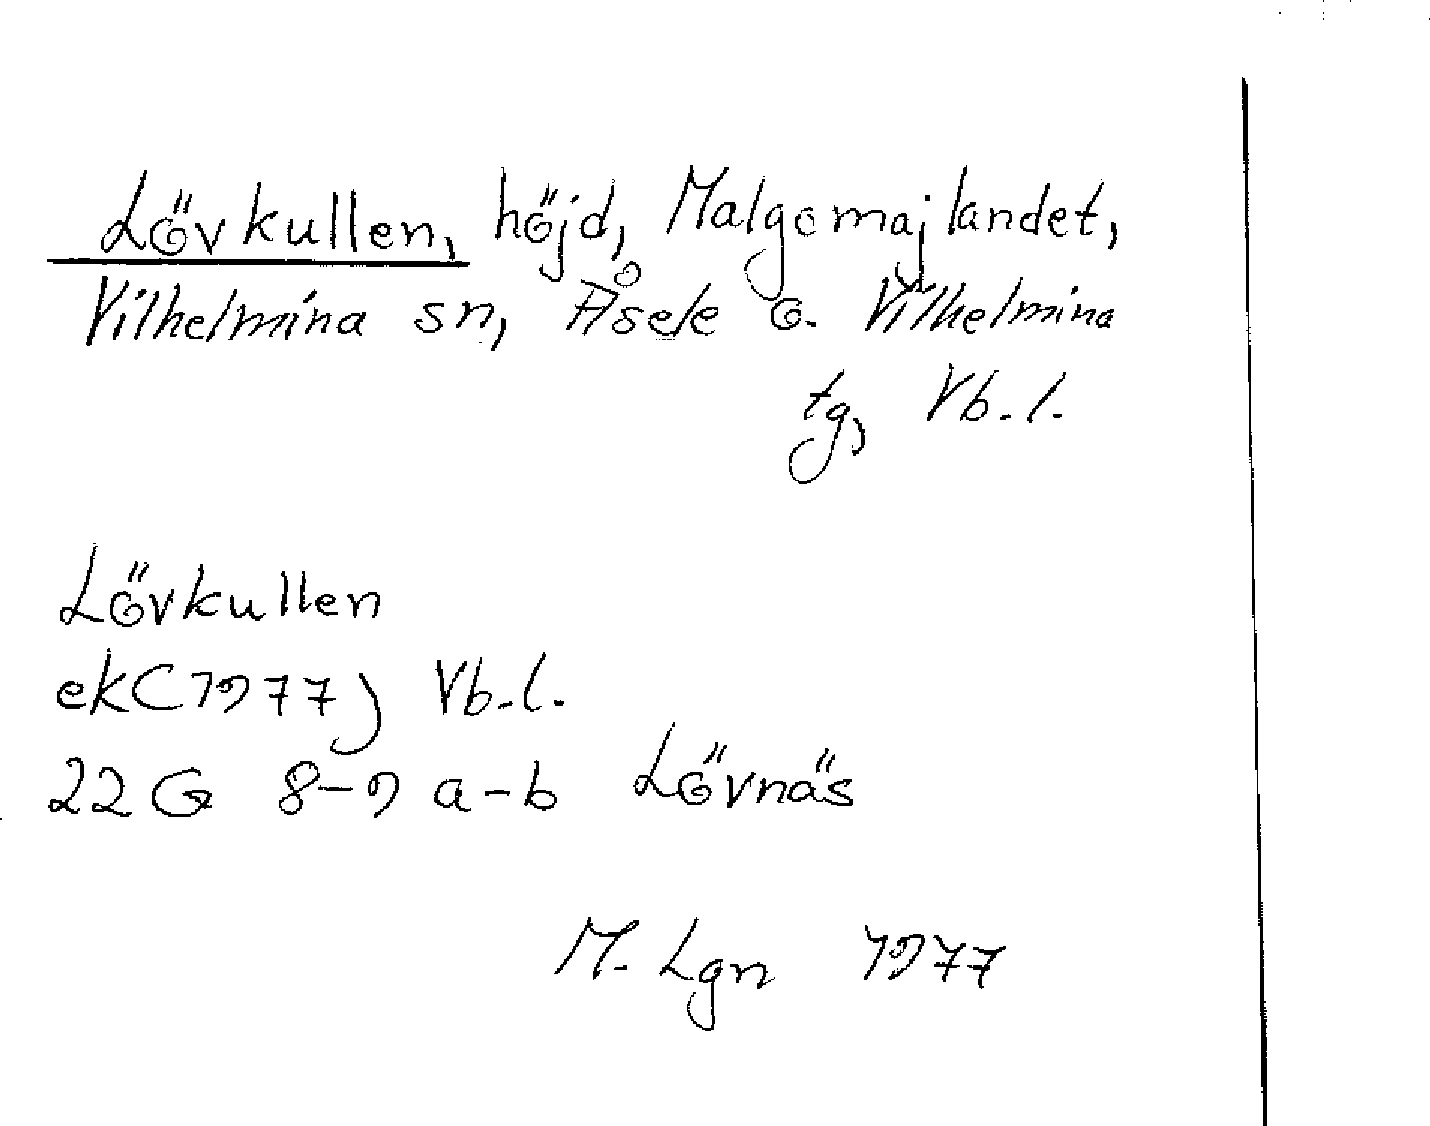 Lövkullen, höjd, Malgomajlandet,
Vilhelmina sn, Åsele o. Vilhelmina
tg, Vb. l.
Lövkullen
ek (1977) Vb. l.
22 G 8-9 a-b Lövnäs
M. Lgn 1977